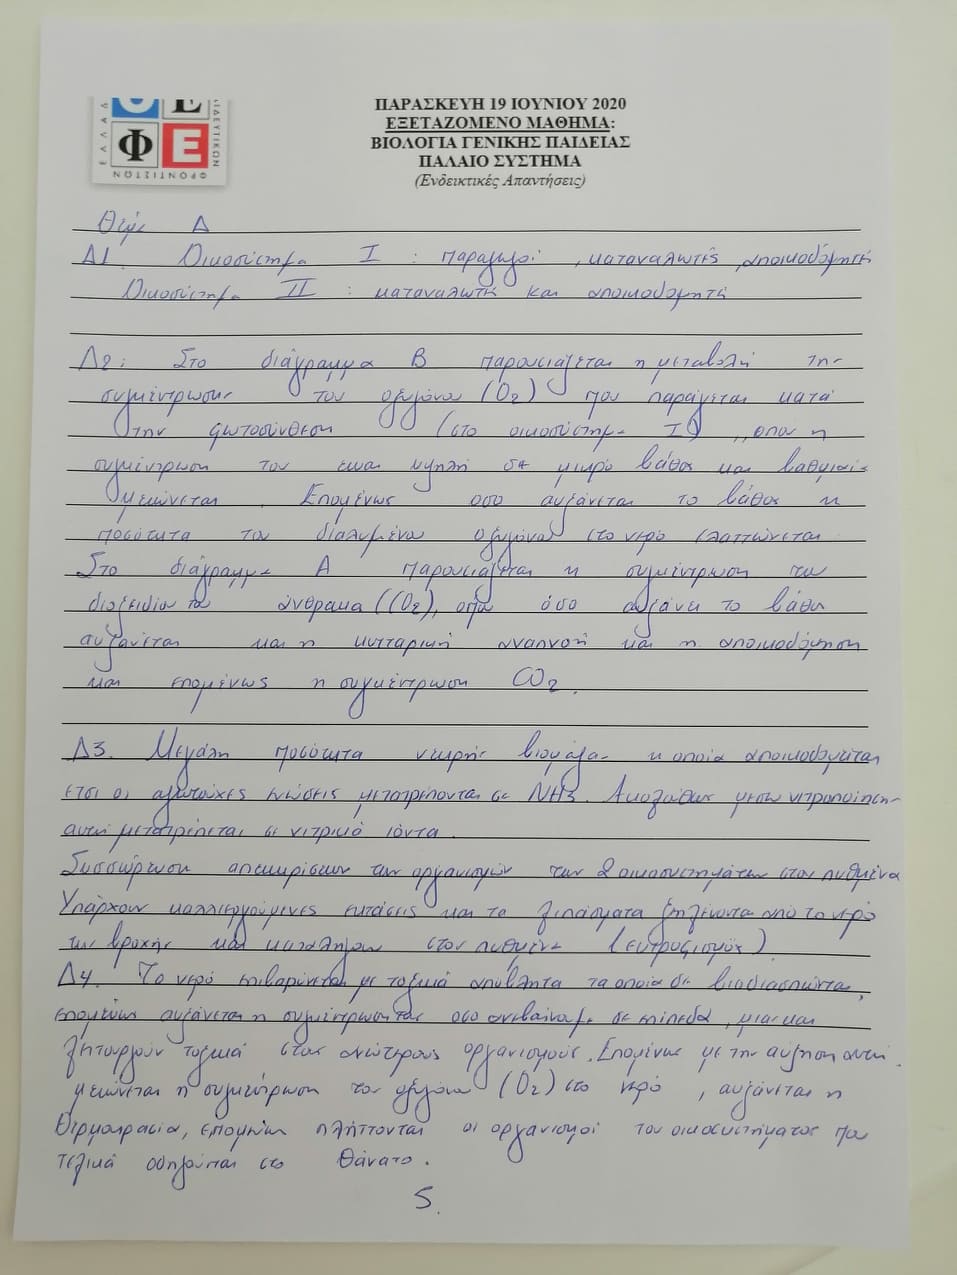 ΕΛΛΑΔ
ΙΔΕΥΤΙΚΩΝ
Φ Ε
ΦΡΟΝΤΙΣΤΩΝ
ΠΑΡΑΣΚΕΥΗ 19 ΙΟΥΝΙΟΥ 2020
ΕΞΕΤΑΖΟΜΕΝΟ ΜΑΘΗΜΑ:
ΒΙΟΛΟΓΙΑ ΓΕΝΙΚΗΣ ΠΑΙΔΕΙΑΣ
ΠΑΛΑΙΟ ΣΥΣΤΗΜΑ
(Ενδεικτικές Απαντήσεις)
Θέμα Δ
Δ1. Οικοσύστημα I : παραγωγοί , καταναλωτές, αποικοδομητές
Οικοσύστημα II : καταναλωτή και αποικοδομητή
Δ2: Στο διάγραμμα Β παρουσιάζεται η μεταβολή της
συγκέντρωσης του οξυγόνου (O2) που παράγεται κατά
την φωτοσύνθεση (στο οικοσύστημα I), όπου η
συγκέντρωση του είναι υψηλή σε μικρό βάθος και βαθμιαία
μειώνεται. Επομένως όσο αυξάνεται το βάθος η
ποσότητα του διαλυμένου οξυγόνου στο νερό ελαττώνεται
Στο διάγραμμα Α παρουσιάζεται η συγκέντρωση του
διοξειδίου του άνθρακα (CO2), όπου όσο αυξάνει το βάθος
αυξάνεται και η κυτταρική αναπνοή και η αποικοδόμηση
και επομένως η συγκέντρωση CO2.
Δ3. Μεγάλη ποσότητα νεκρής βιομάζας η οποία αποικοδομείται
έτσι οι αζωτούχες ενώσεις μετατρέπονται σε NH3. Ακολούθως μέσω νιτροποίησης
αυτή μετατρέπεται σε νιτρικά ιόντα.
Συσσώρευση απεκκρίσεων των οργανισμών των 2 οικοσυστημάτων στον πυθμένα
Υπάρχουν καλλιεργούμενες εκτάσεις και τα λιπάσματα ξεπλένονται από το νερό
της βροχής και καταλήγουν στον πυθμένα (ευτροφισμός)
Δ4. Το νερό επιβαρύνεται με τοξικά απόβλητα τα οποία δε βιοδιασπώνται,
επομένως αυξάνεται η συγκέντρωση τους όσο ανεβαίνουμε σε επίπεδα, μιας και
λειτουργούν τοξικά στους ανώτερους οργανισμούς. Επομένως με την αύξηση αυτή
μειώνεται η συγκέντρωση του οξυγόνου (O2) στο νερό , αυξάνεται η
θερμοκρασία, επομένως πλήττονται οι οργανισμοί του οικοσυστήματος που
τελικά οδηγούνται στο θάνατο.
5.